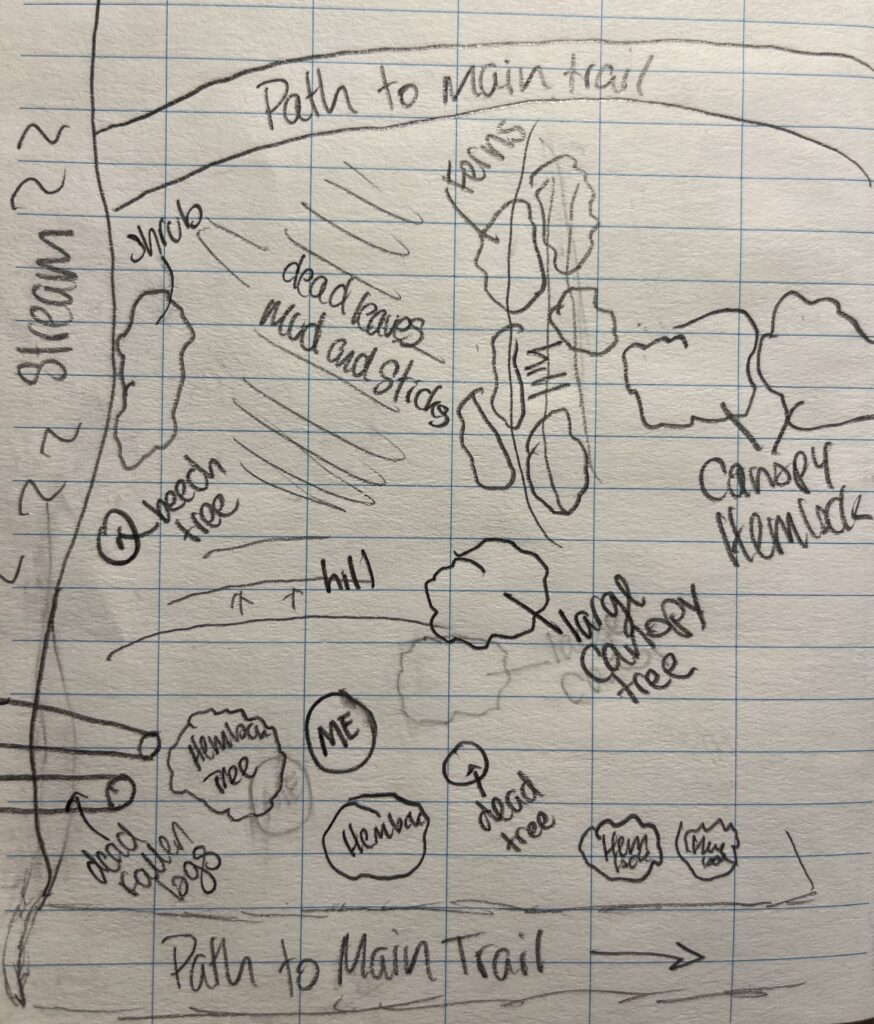 Path to Main trail
ferns
shrub
Stream
dead leaves
Mud and Sticks
Canopy
Hemlock
beech
tree
hill
large
canopy
tree
ME
Hemlock
Tree
dead
tree
Hemlock
dead
fallen
logs
Hem
lock
Path to Main Trail